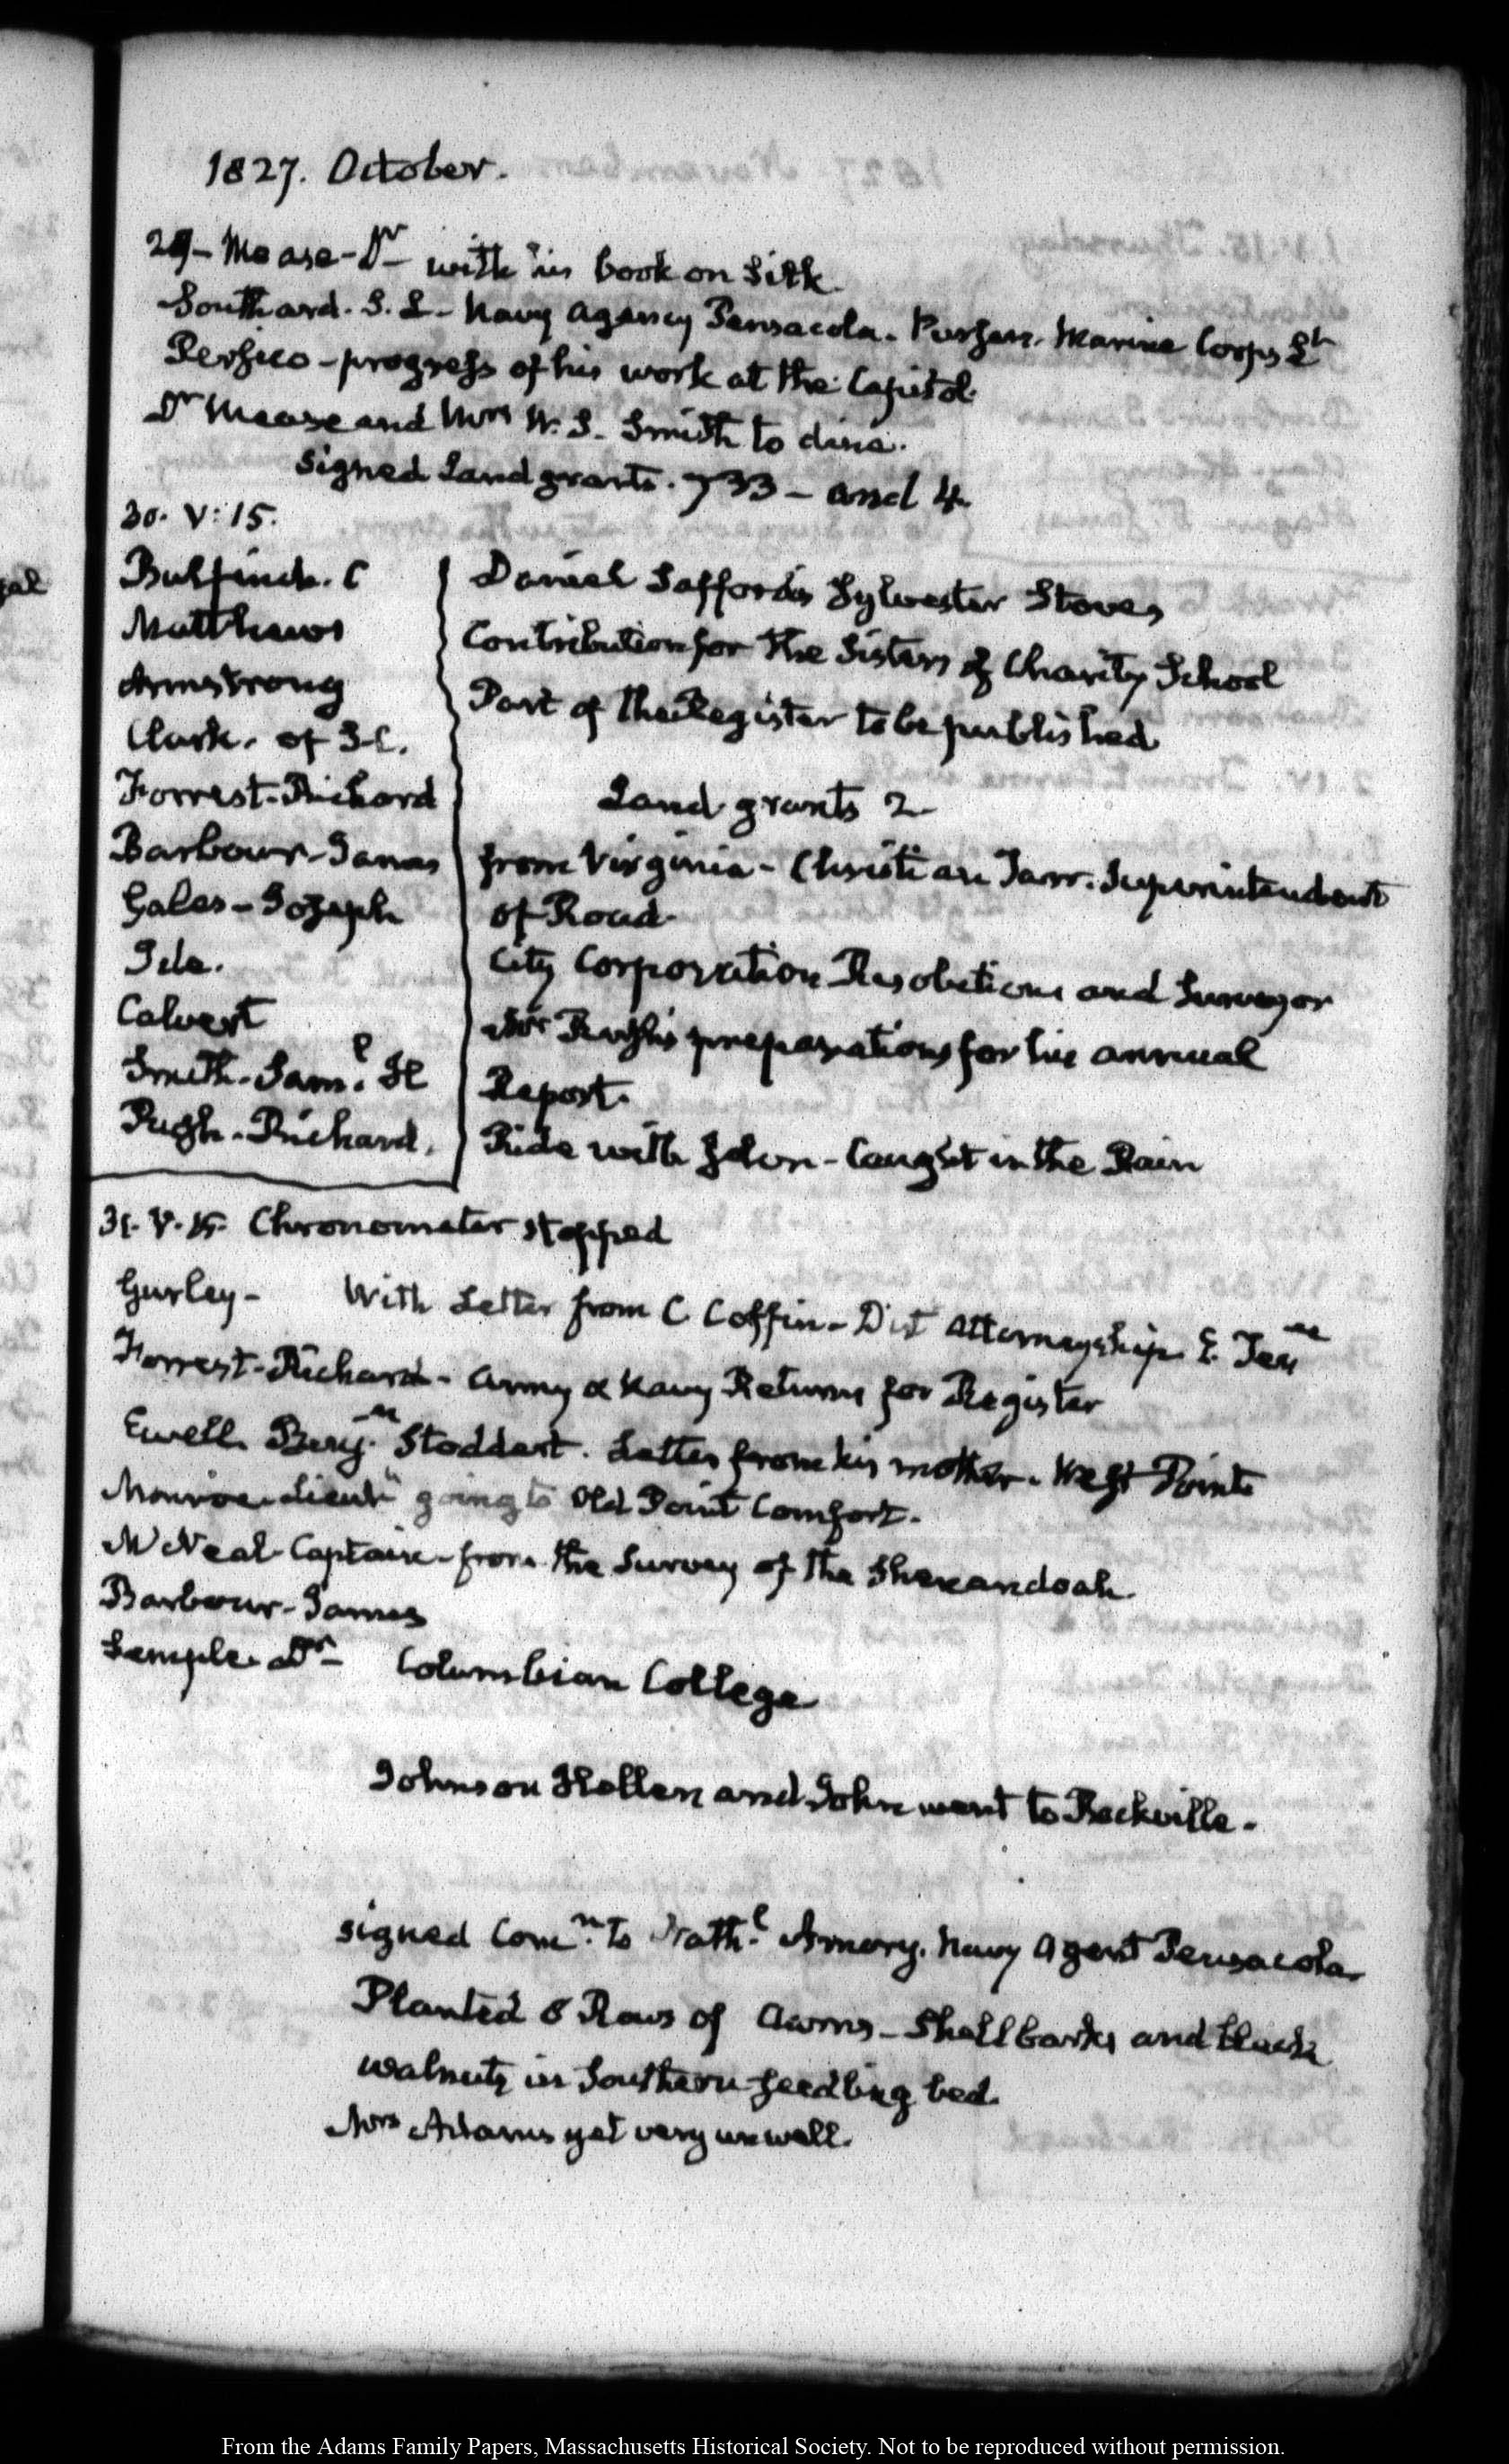 1827. October.
29- Mease-Dr- with his book on Silk.
Southard. S. L- Navy Agency Pensacola. Purser. Marine Corps Lt
Persico - progress of his work at the Capitol.
Dr Mease and Mrs W. S. Smith to dine.
signed Land grants. 733 - and 4.
30. V: 15.
Bulfinch. C
Matthews
Armstrong
Clark. of S-C.
Forrest-Richard
Barbour-James
Gales-Joseph
Ide.
Calvert
Smith-Saml. H
Pugh-Richard.
Daniel Safford's Sylvester Stoves
Contribution for the Sisters of Charity School
Part of the Register to be published
Land grants 2
from Virginia - Christian Tarr. Superintendent
of Road.
City Corporation Resolutions and Surveyor
Mr Pugh's preparations for his annual
Report.
Ride with John - Caught in the Rain
31. V. 15. Chronometer stopped
Gurley- With Letter from C Coffin - Dist Attorneyship E. Tenne
Forrest-Richard- Army & Navy Returns for Register
Ewell. Benjn. Stoddert. Letter from his mother. West Point
Monroe. Lieutt going to Old Point Comfort.
McNeal-Captain-from the Survey of the Shenandoah.
Barbour-James
Semple. Dr- Columbian College
Johnson Hellen and John went to Rockville.
signed Comn. to Nathl. Amory. Navy Agent Pensacola.
Planted 8 Rows of Acorns - Shellbarks and black
walnuts in Southern seedling bed.
Mrs Adams yet very unwell.
From the Adams Family Papers, Massachusetts Historical Society. Not to be reproduced without permission.